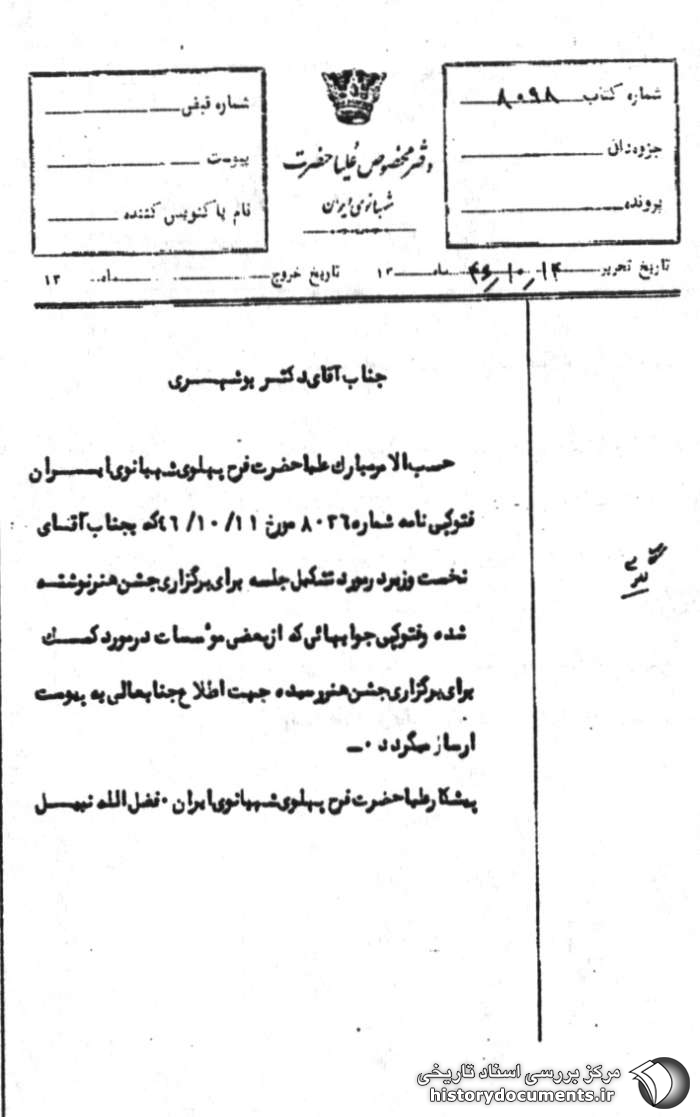 شماره کتاب ۸۰۹۸
جزوه‌دان
پرونده
دفتر مخصوص علیا حضرت
شهبانوی ایران
شماره قبض
پیوست
نام پاکنویس کننده
تاریخ تحریر ۱۴ ماه ۱۰ ۱۳۴۶
تاریخ خروج ماه ۱۳
جناب آقای دکتر بوشهری
حسب الامر مبارک علیا حضرت فرح پهلوی شهبانوی ایران
فتوکپی نامه شماره ۸۰۲۶ مورخ ۱۱/ ۱۰/ ۴۶ که بجناب آقای
نخست وزیر در مورد تشکیل جلسه برای برگزاری جشن هنر نوشته
شده و فتوکپی جوابهائی که از بعضی مؤسسات در مورد کمک
برای برگزاری جشن هنر رسیده جهت اطلاع جنابعالی به پیوست
ارسال میگردد ۰ــ
پیشکار علیا حضرت فرح پهلوی شهبانوی ایران ۰ فضل الله نبیل
مرکز بررسی اسناد تاریخی
historydocuments.ir